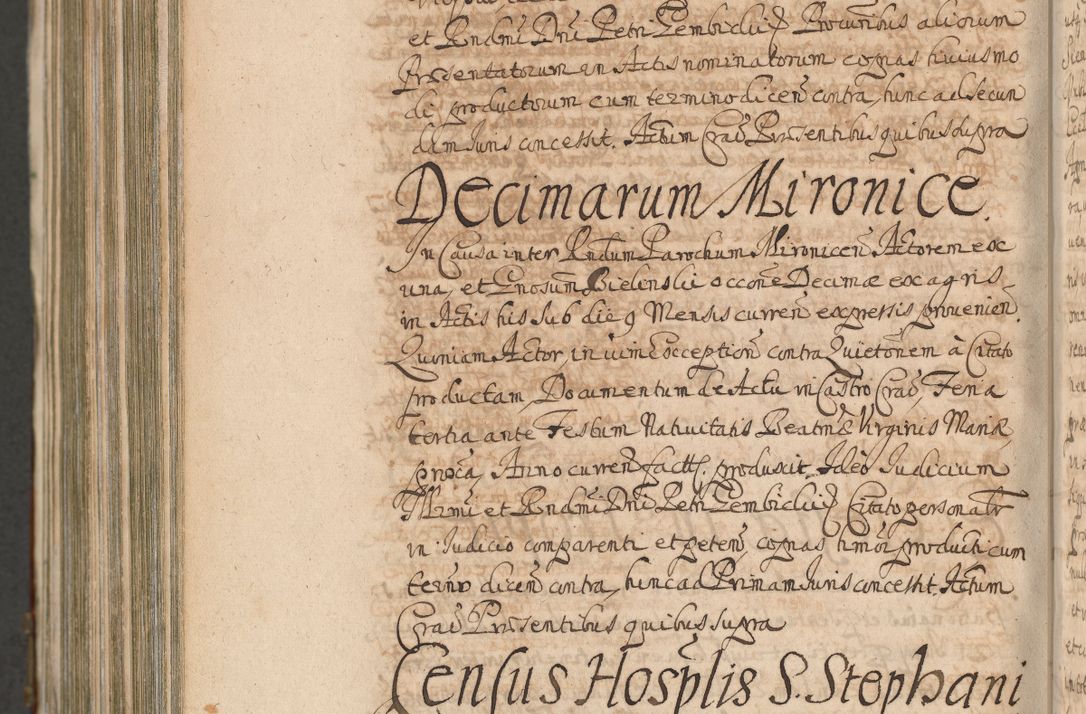 et Rndmi Dni Petri Gembickii Procuribus aliorum
Præsentatorum in Actis nominatorum copias huiusmo
di productorum cum termino dicen contra, hinc ad Secun
dam Iuris concessit. Actum Crac Præsentibus quibus supra
Decimarum Mironice.
In Causa inter Rndum Parochum Mironicen Actorem ex
una, et Gnosum Bielinski occone Decimæ ex agris
in Actis his sub die 9 Mensis curren expressis provenien.
Quoniam Actor, in vim exception contra Quietonem à Citato
productam, Documentum de Actu in Castro Crac, Feria
tertia ante Festum Nativitatis Beatmæ Virginis Mariæ
proxa, Anno curren fact. produxit. Ideo Iudicium
Illrmi et Rndmi Dni Petri Gembickii Citato personalr
in Iudicio comparenti et peten, copias himoi producti cum
termo dicen contra, hinc ad Primam Iuris concessit. Actum
Crac Præsentibus quibus supra
Census Hosplis S. Stephani